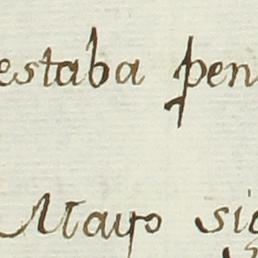 estaba pen
Mayo sig